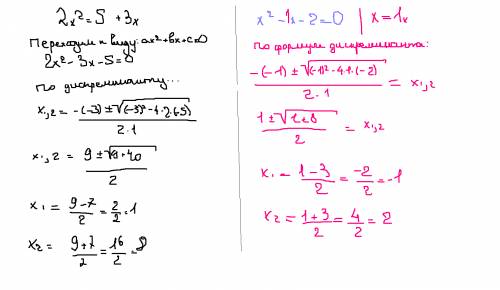 2x² = 5 + 3x
Переходим к виду: ax²+bx+c=0
2x² - 3x - 5 = 0
по дискриминанту...
x₁,₂ = (-(-3) ± √((-3)² - 4·2·(-5))) / (2·1)
x₁,₂ = (9 ± √(9+40)) / 2
x₁ = (9-7)/2 = 2/2 = 1
x₂ = (9+7)/2 = 16/2 = 8
x² - 1x - 2 = 0 | x = 1x
по формуле дискриминанта:
(-(-1) ± √((-1)² - 4·1·(-2))) / (2·1) = x₁,₂
(1 ± √(1+8)) / 2 = x₁,₂
x₁ = (1-3)/2 = -2/2 = -1
x₂ = (1+3)/2 = 4/2 = 2